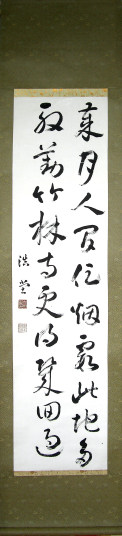 歲月人間促烟霞此地多
殷勤竹林寺更得幾回過